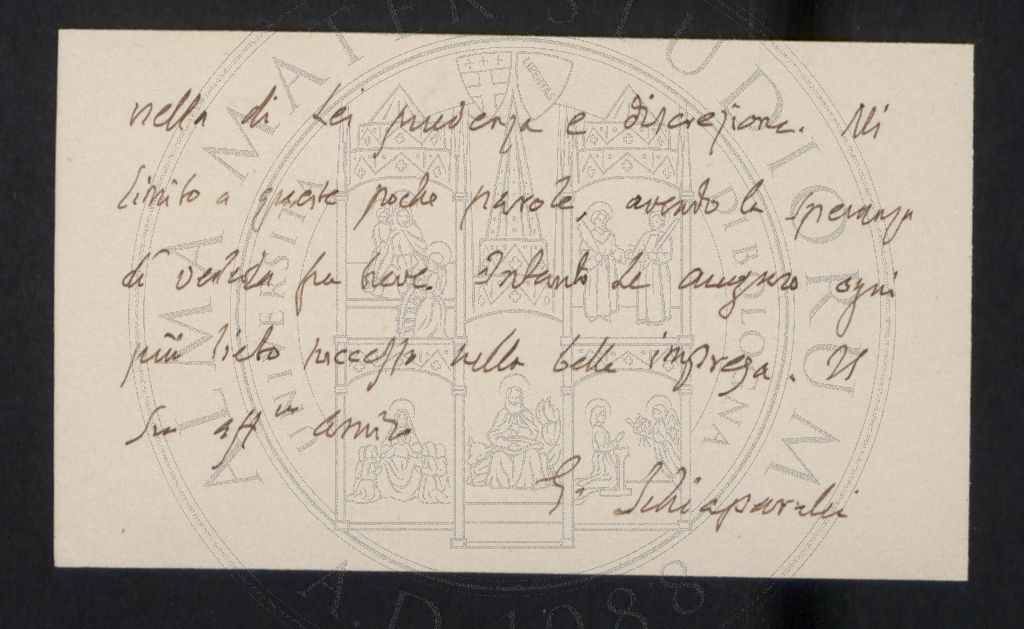 nella di Lei prudenza e discrezione. Mi
limito a queste poche parole, avendo la speranza
di vederla fra breve. Intanto Le auguro ogni
più lieto successo nella bella impresa. Il
Suo aff.mo amico
G. Schiaparelli
ALMA MATER STUDIORUM
A.D. 1088
LIBERTAS